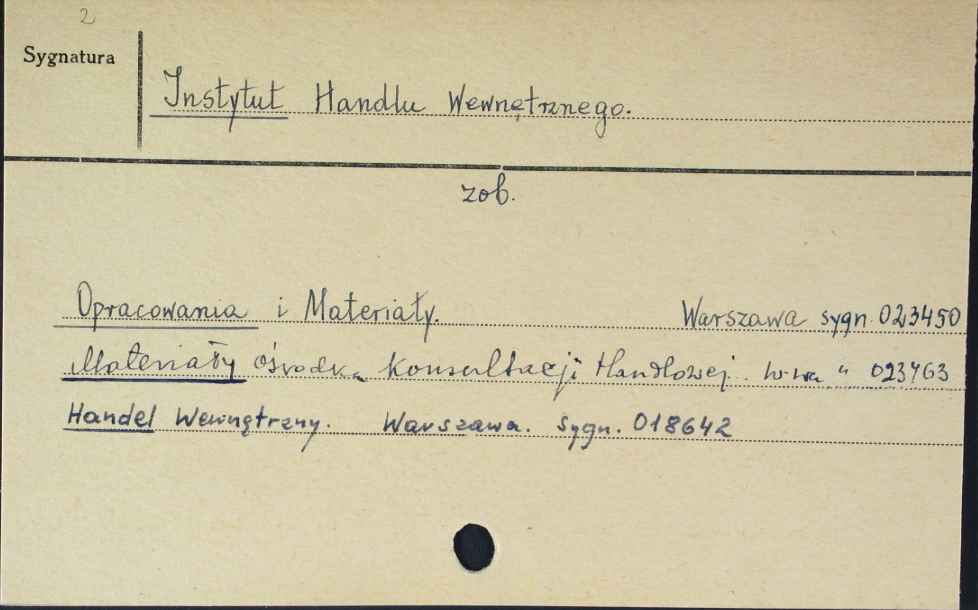 2
Sygnatura
Instytut Handlu Wewnętrznego.
zob.
Opracowania i Materiały. Warszawa sygn. 023450
Materiały Ośrodka Konsultacji Handlowej. W-wa " 023463
Handel Wewnętrzny. Warszawa. Sygn. 018642